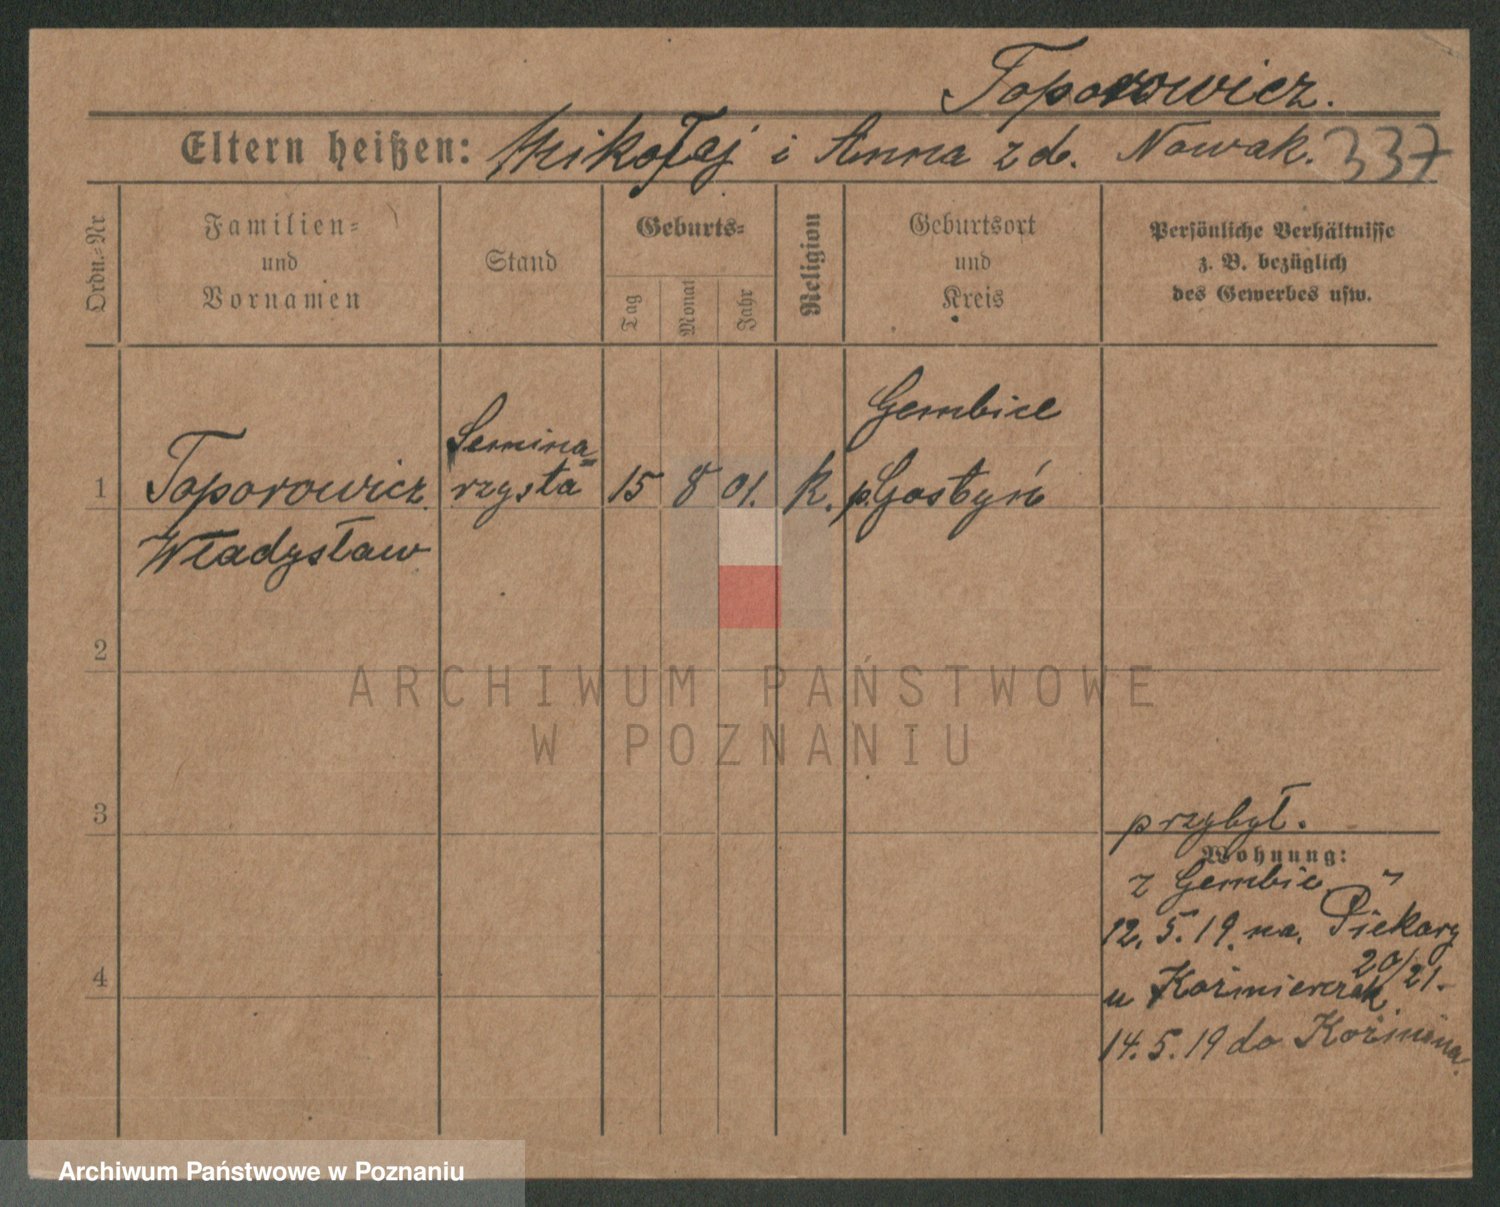 Toporowicz.
Eltern heißen: Mikołaj i Anna z d. Nowak. 337
Ordn.-Nr
Familien-
und
Vornamen
Stand
Geburts-
Tag
Monat
Jahr
Religion
Geburtsort
und
Kreis
Persönliche Verhältnisse
z. B. bezüglich
des Gewerbes usw.
1
Toporowicz
Władysław
Semina=
rzysta
15
8
01.
k.
Gembice
p. Gostyń
2
3
4
przybył.
Wohnung:
z Gembic
12. 5. 19. na. Piekary
20/21.
u Koźmierczak
14. 5. 19 do Koźmina.
ARCHIWUM PAŃSTWOWE
W POZNANIU
Archiwum Państwowe w Poznaniu